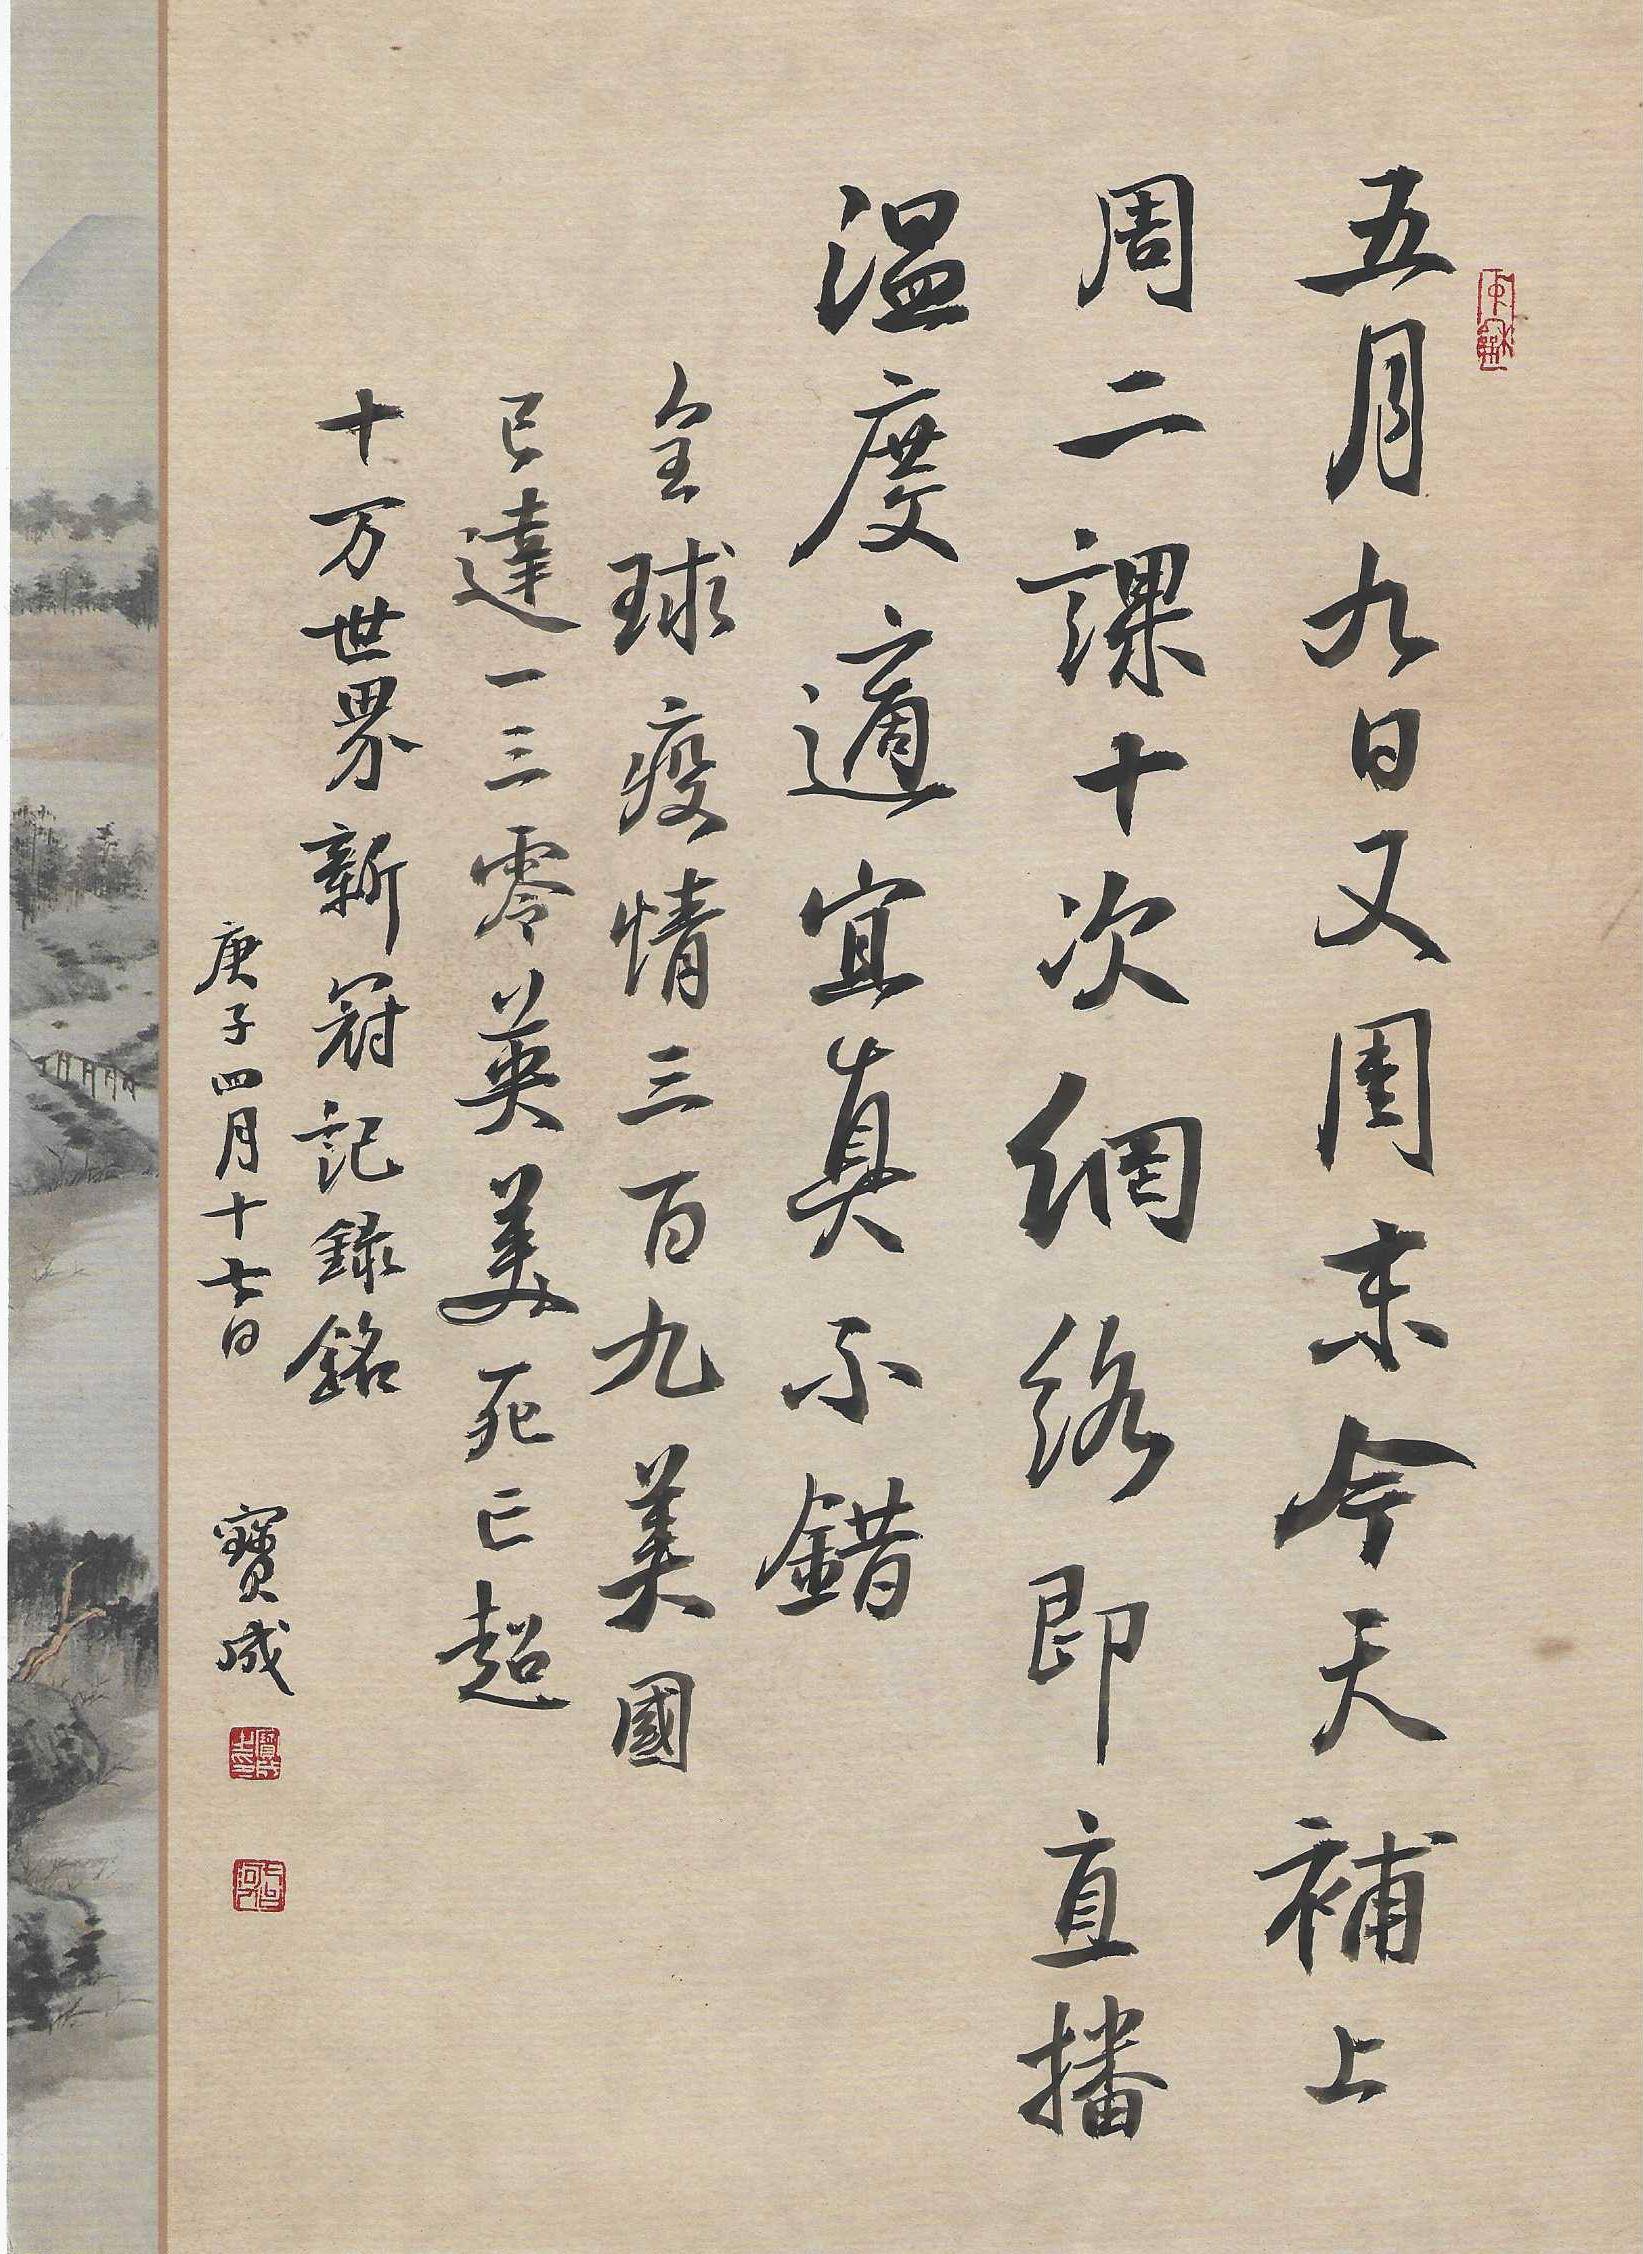 五月九日又周末今天補上
周二課十次網络即直播
温度適宜真不錯
全球疫情三百九美國
已達一三零英美死亡超
十万世界新冠記録銘
庚子四月十七日 寶成